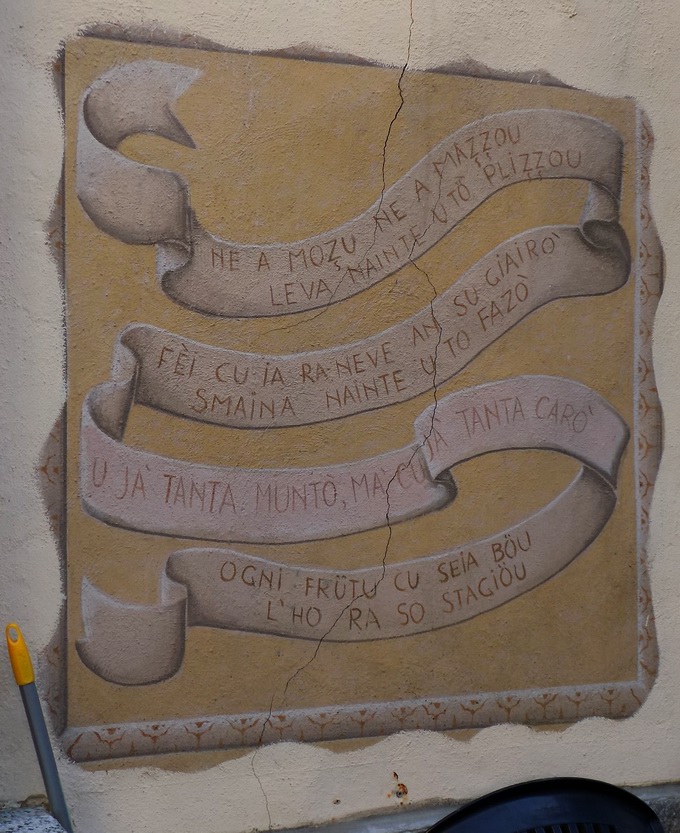 NE A MOẒU NE A MAẒẒOU
LEVA NAINTE U TÖ PLIẒẒOU
FÈI CU IA RA NEVE AN SU GIAIRÒ
SMAINA NAINTE U TO FAZÒ
U JÀ TANTA MUNTÒ, MA CU JÀ TANTA CARÒ
OGNI FRÜTU CU SEIA BÖU
L'HO RA SO STAGIÖU